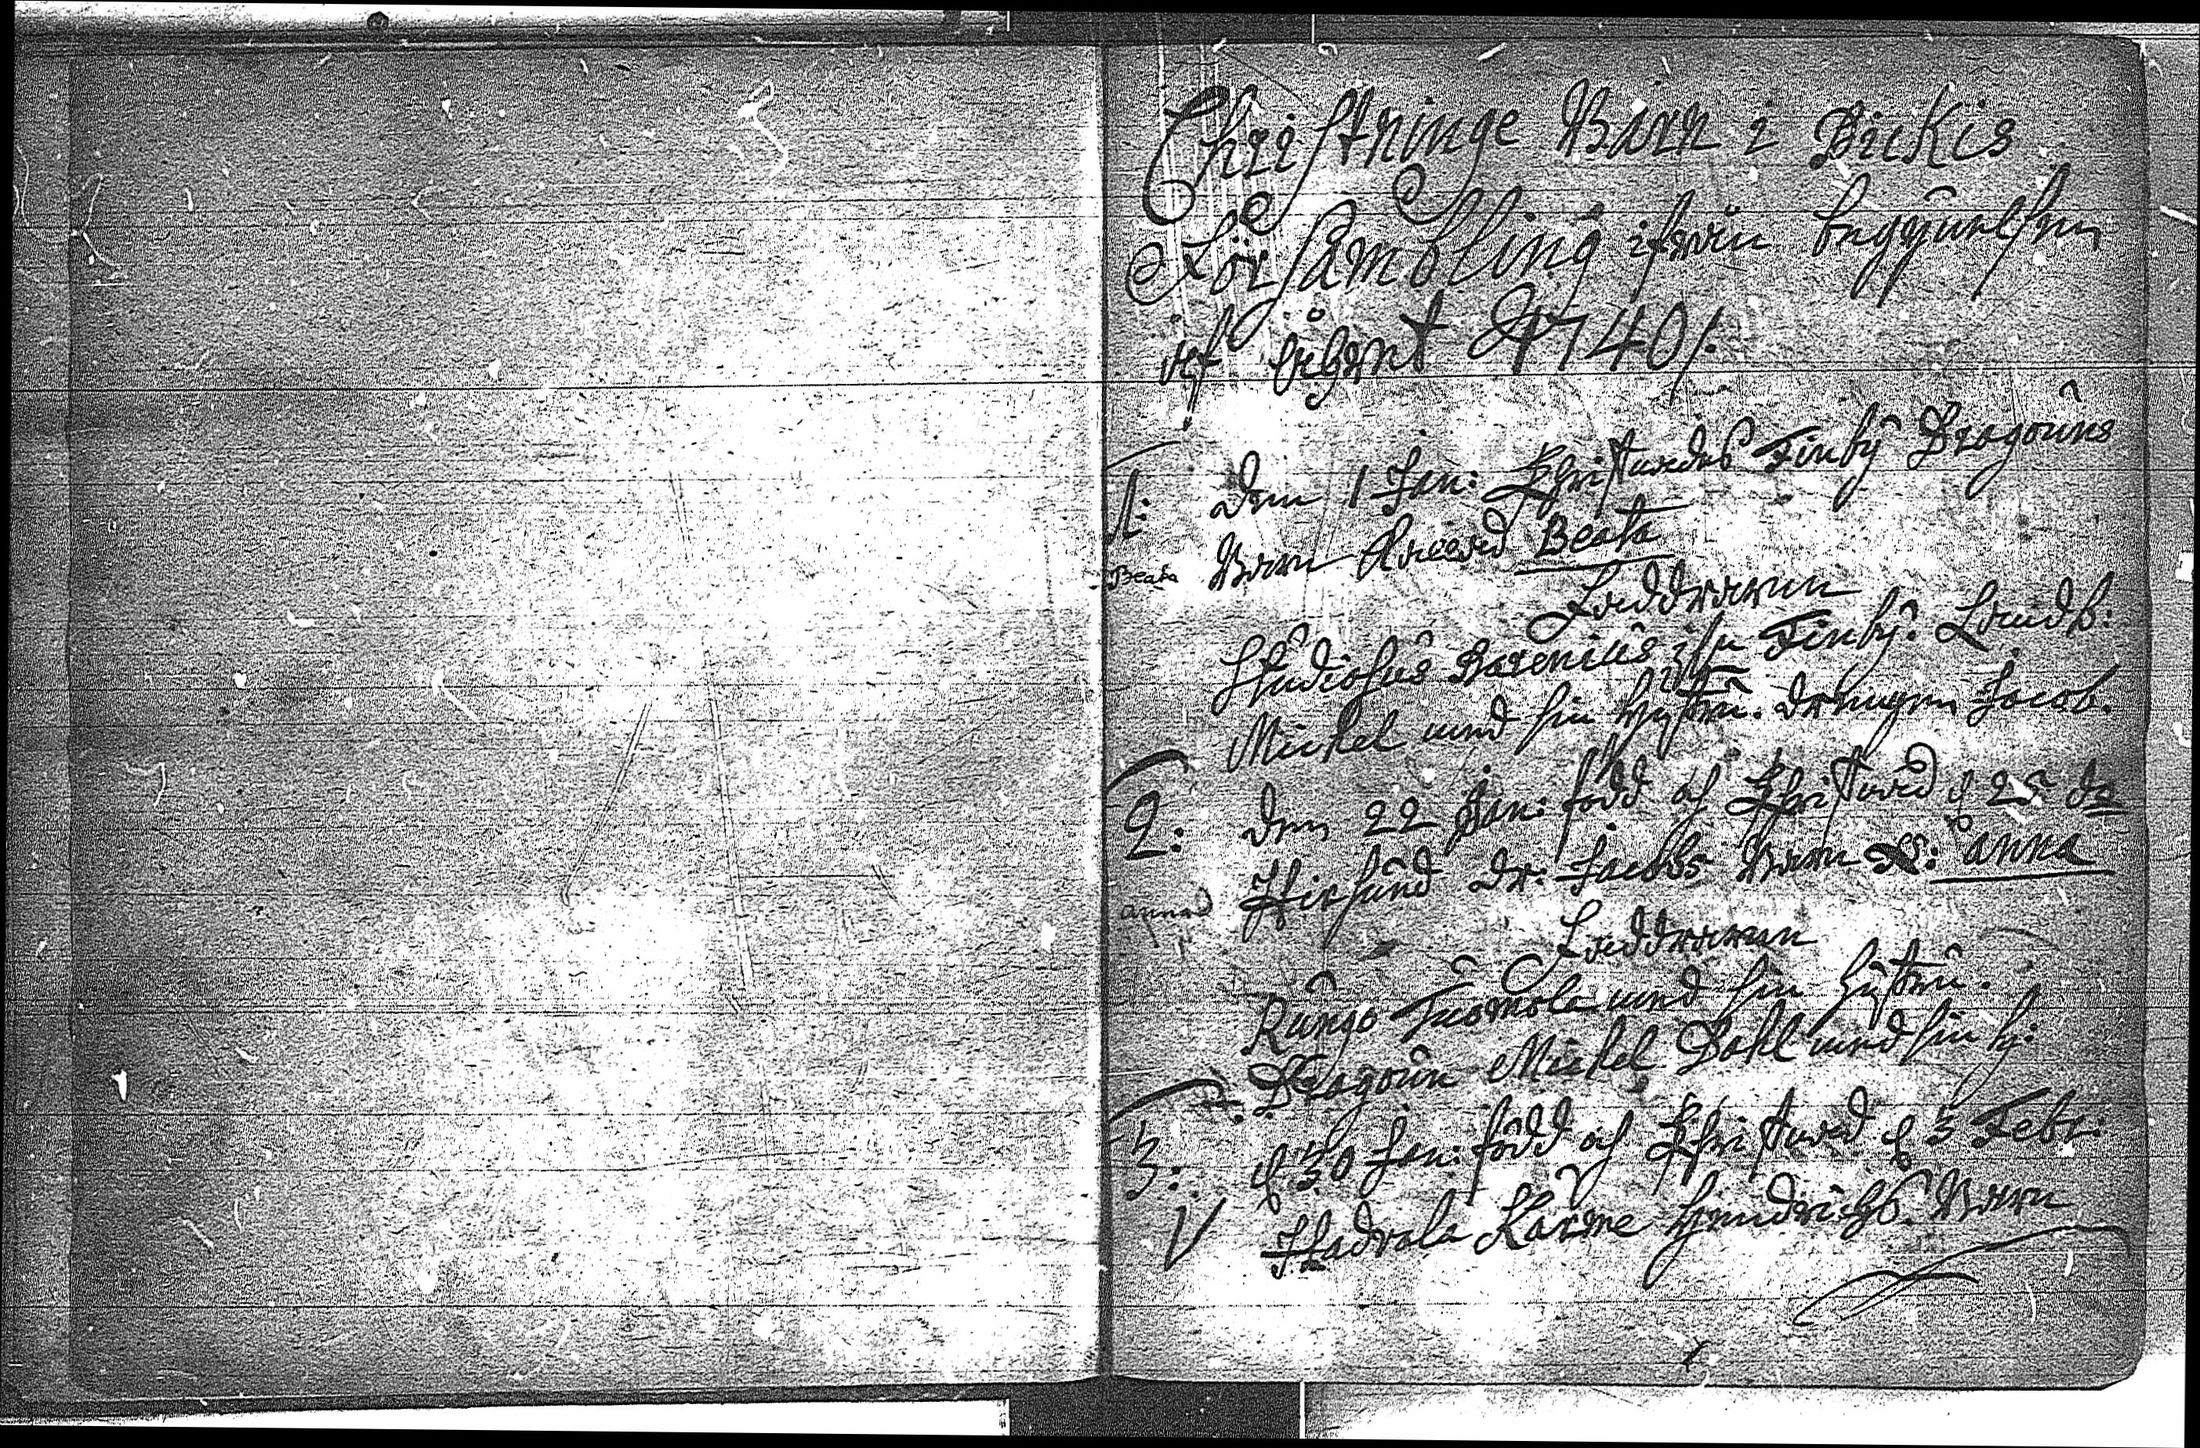 Christninge Barn i Birkis
Försambling ifrån begÿnnelsen
af åhret 1740/.
1: Den 1 Jan: Christnades Finbÿ Dragouns
Beata Barn kallad Beata
Faddrarna
Studiosus Barenius ifr Finbÿ. Landb:
Mickel med sin hustru. Drengen Jacob.
2: Den 22 Jan: född och Christnad d 25 do
Anna dr: Jacobs Barn N: Anna
Faddrarna
Rungo Tuomola med sin hustru.
Dragoun Mickel Dahl med sin h:
3: d 30 Jan: född och Christnad d 3 Febr:
Karme Hendrichs Barn